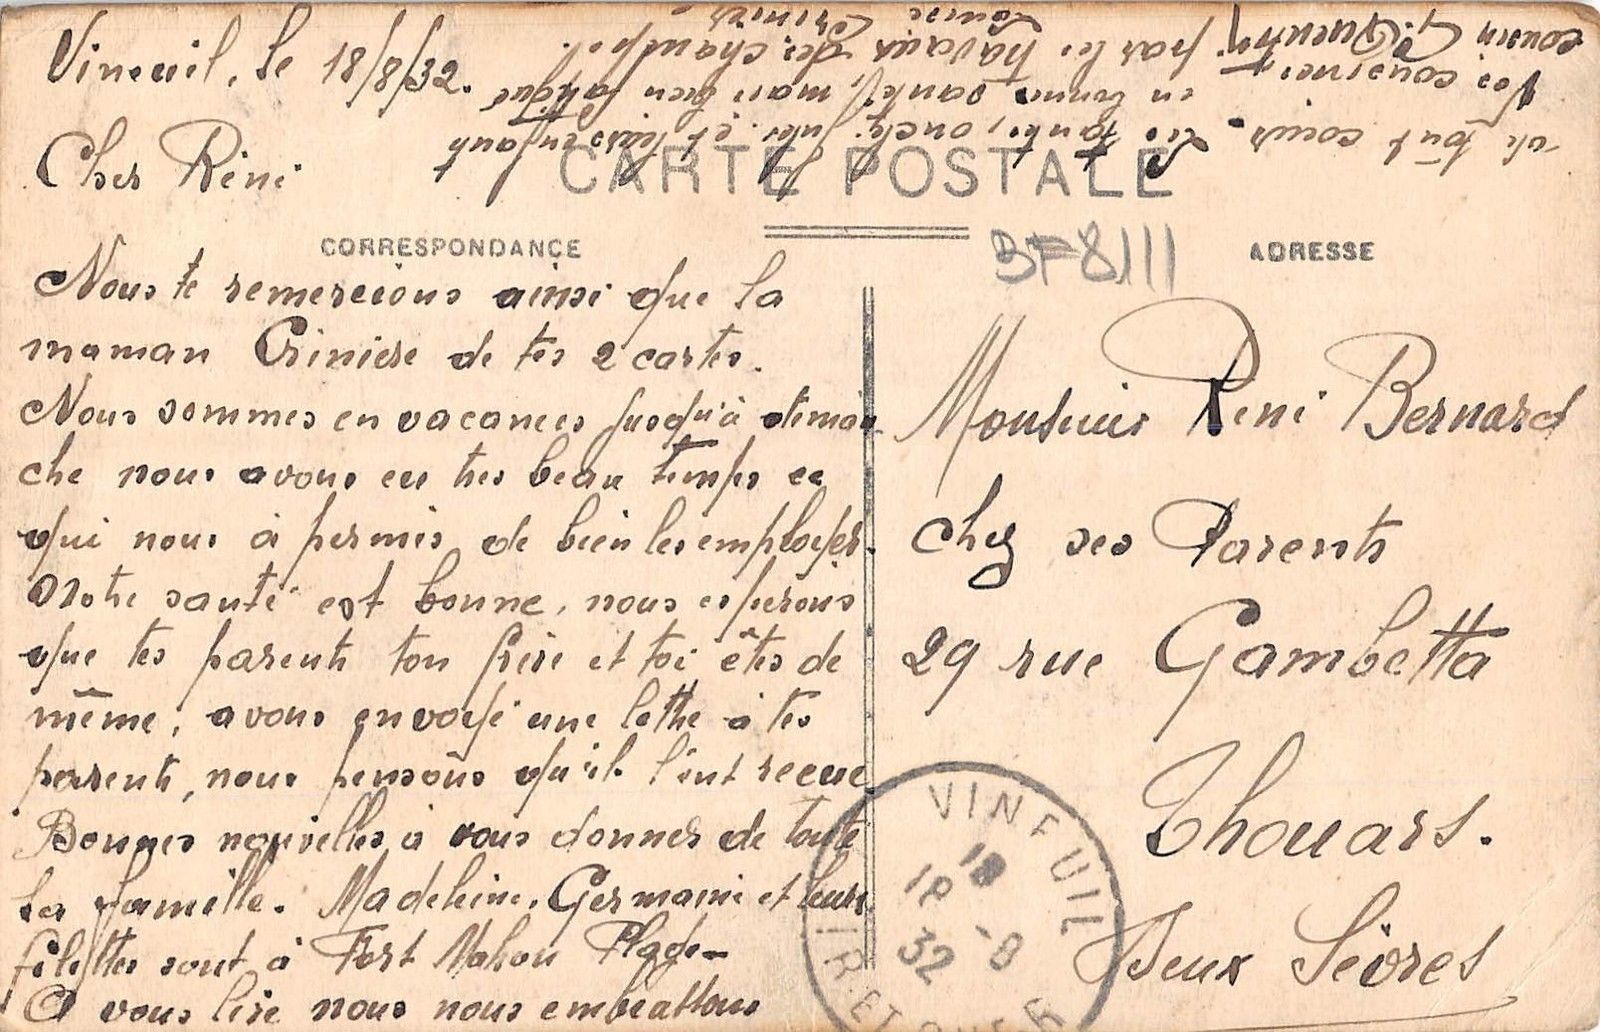 Vineuil, le 18/8/32.
Cher Réné
CARTE POSTALE
CORRESPONDANCE
ADRESSE
BF8111
Nous te remercions ainsi que la
maman Crinière de tes 2 cartes.
Nous sommes en vacances jusqu'à diman
che nous avons eu très beau temps ce
qui nous à permis de bien les employer.
Notre santé est bonne, nous espérons
que tes parents ton frère et toi êtes de
même, avons envoyé une lettre à tes
parents, nous pensons qu'ils l'ont reçue
Bonnes nouvelles à vous donner de toute
la famille. Madeleine, Germaine et leurs
fillettes sont à Fort Mahon Plage -
A vous lire nous nous embrattons
de tout cœur. Les tantes, oncle, et leurs enfants
en bonne santé, mais bien fatigué
par les travaux des champs.
Vos cousines
cousin G. Quentin
Louise Crinière
Monsieur Réné Bernard
chez ses Parents
29 rue Gambetta
Thouars.
Deux Sèvres
VINEUIL
18
18 -8
32
IR-ET-CHER